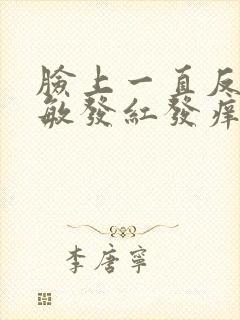 臉上一直反
敏發紅發痒
李唐寧